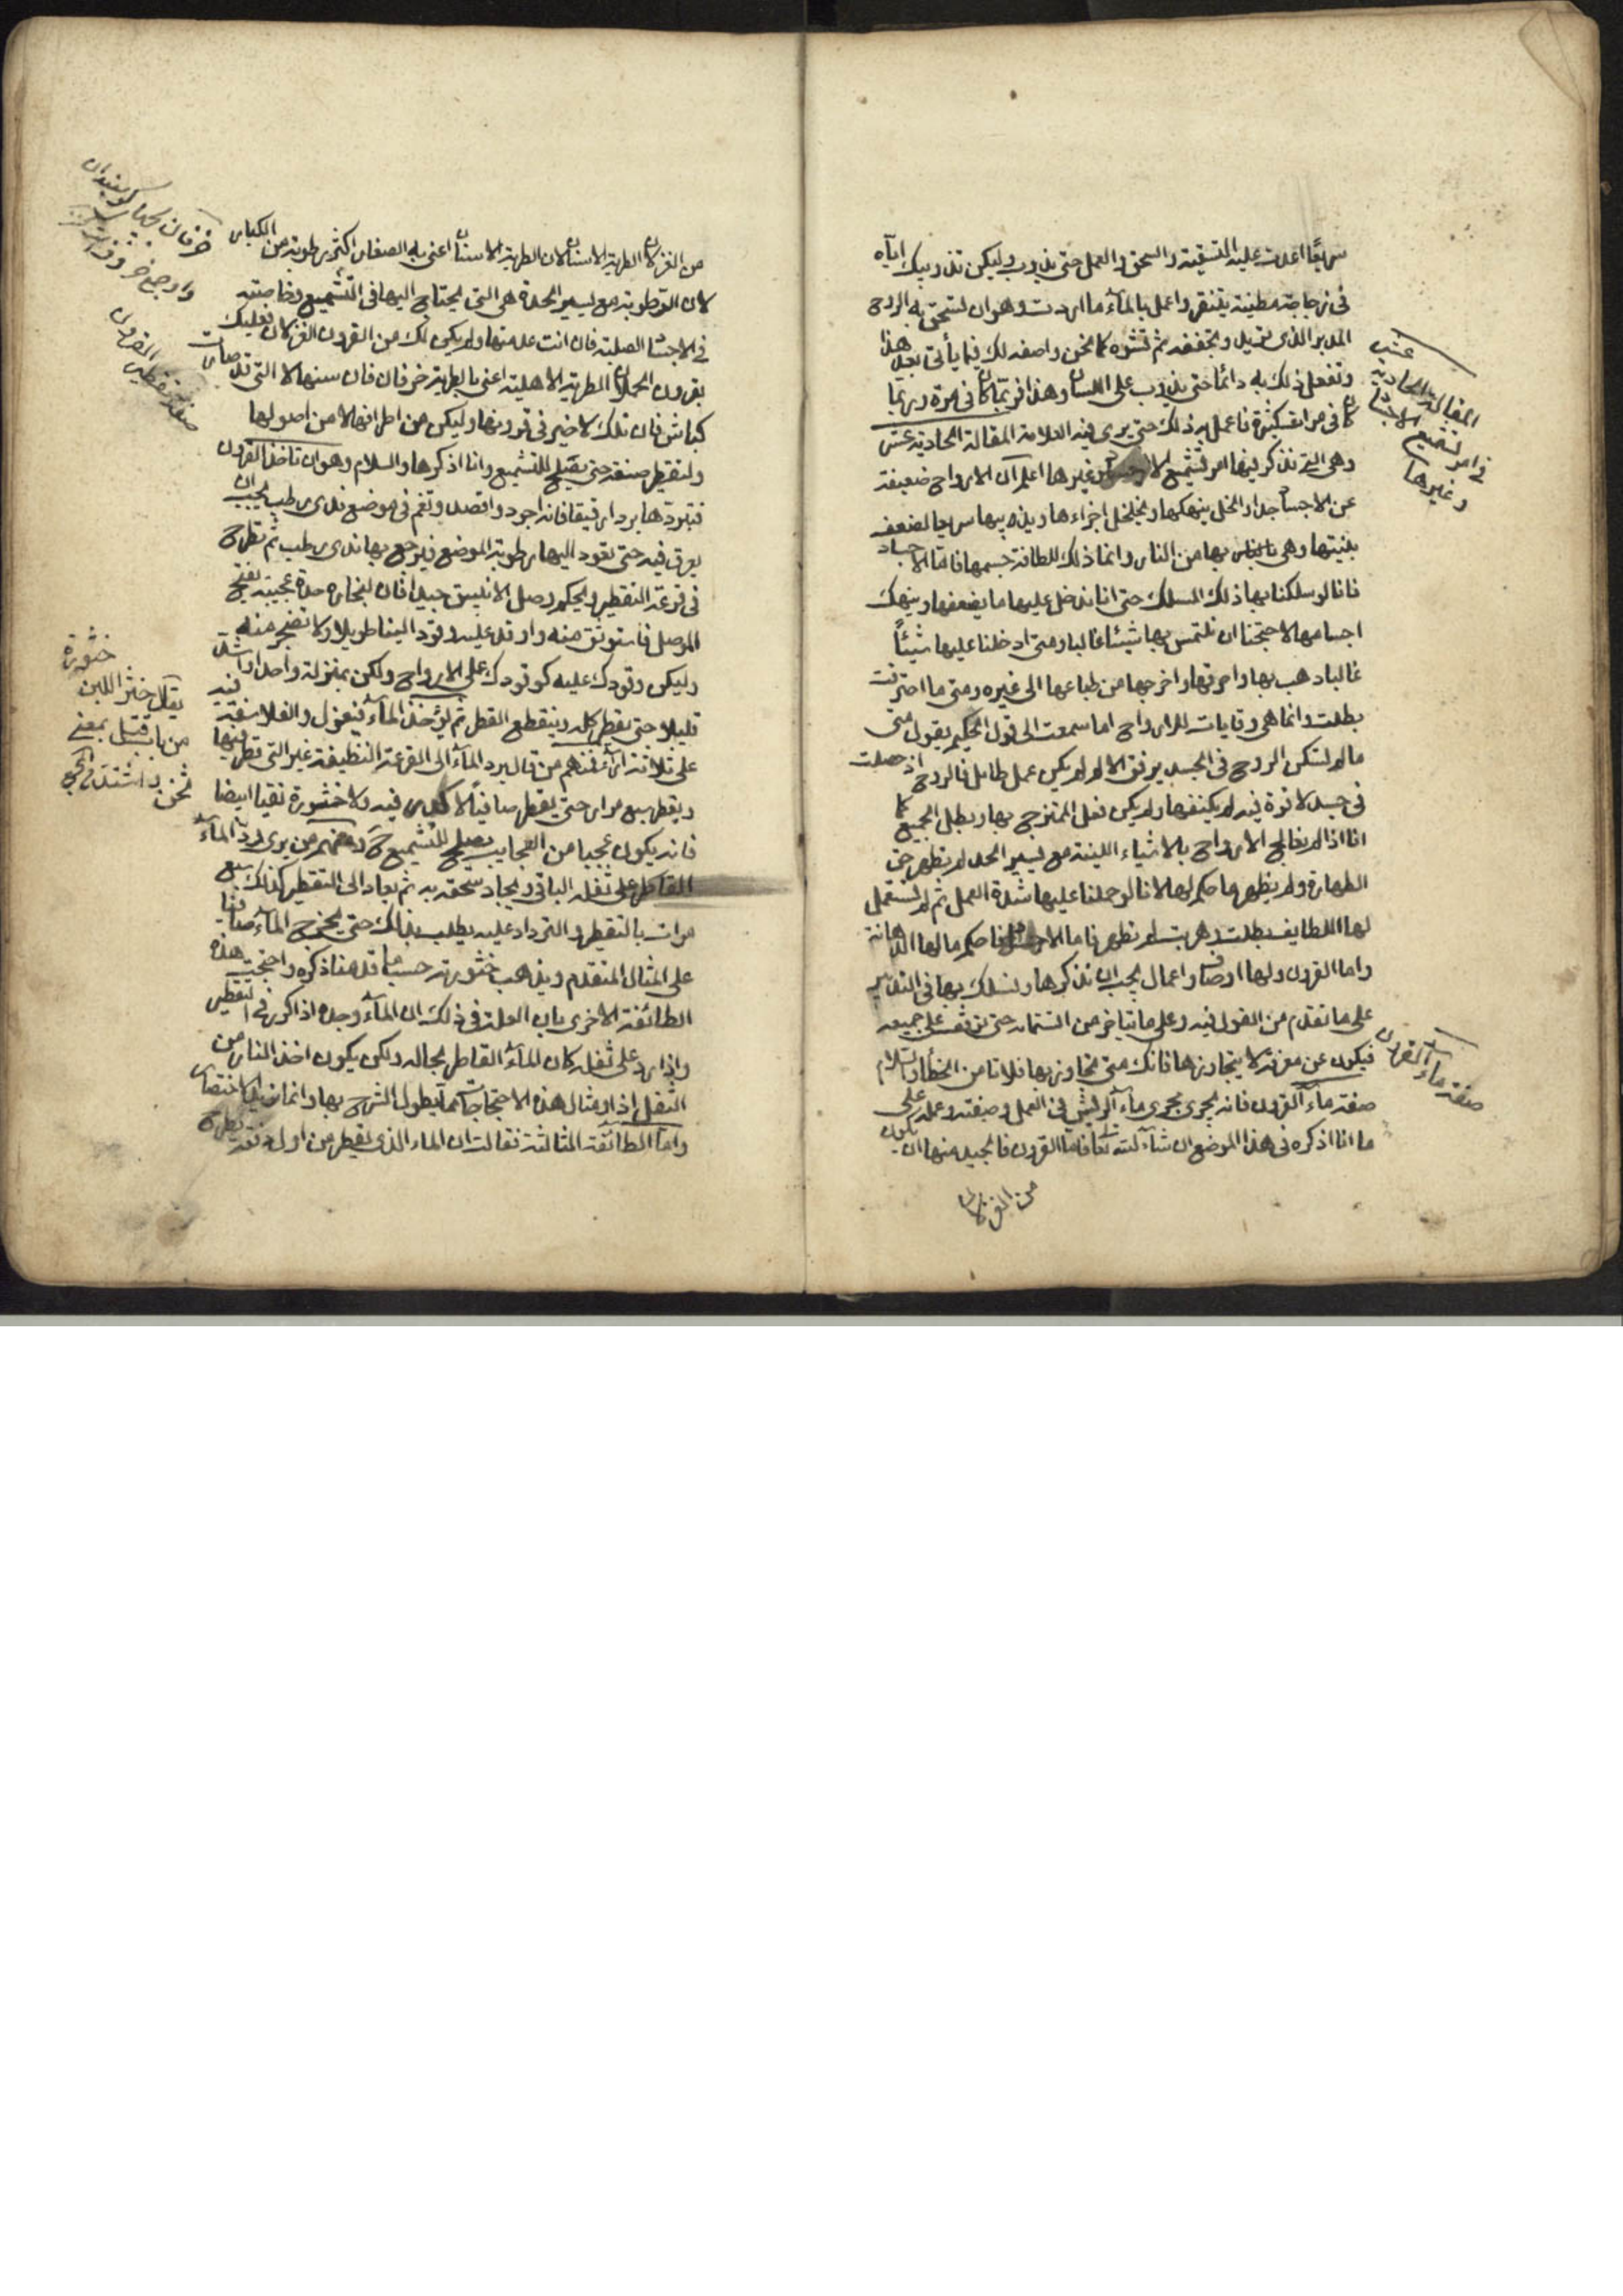 سريعًا اعدت عليه التسقية والسحق والعمل حتى يذوب وليكن تذويبك اياه
في زجاجة مطينة يتنقر واعمل بالماء ما اردت وهو ان تستحق به الروح
المدبر الذى تريد وتجففه ثم تشوه كما نحن واصفه لك فيما يأتى بعد هذا
وتفعل ذلك به دائما حتى يذوب على اللسان وهذا فربما كان فى مرة وربما
كان فى مرات كثيرة فاعمل بر ذلك حتى يرى فيه العلامة المقالة الحادية عشر
وهى التى نذكر فيها امر تشميع الاجساد وغيرها اعلم ان الارواح ضعيفة
عن الاجساد جدا والخل ينهكها ويخلخل اجزاءها ويذيبها سريعا لضعف
بنيتها وهى بها من النار وانما ذلك للطافة جسمها فاما الاجساد
فانا لو سلكنا بها ذلك المسلك حتى انا ندخل عليها ما يضعفها وينهك
اجسامها لاحتجنا ان نلتمس بها شيئا غالبا ومتى ادخلنا عليها شيئاً
غالبا ذهب بها واحرقها واخرجها من طباعها الى غيره ومتى ما احترقت
بطلت وانما هى وقايات للارواح اما سمعت الى قول الحكيم يقول متى
ما لم تسكن الروح فى الجسد برفق الالم لم يكن عمل طائل فالروح اذ حصلت
فى جسد لا قوة فيه لم يكنفها ولم يكن فعل الممتزج بها وبطل الجميع كما
انا اذا لم نعالج الارواح بالاشياء اللينة مع يسير الحد لم تطهر حق
الطهارة ولم يظهر ما حكم لها لانا لو حملنا عليها شدة العمل ثم لم نستعمل
لها اللطايف بطلت وهربت لم تطهر فاما الاجساد فاحكم ما لها الدهانة
واما القرون ولها اوصاف واعمال يجب ان نذكرها ونسلك بها فى التدابير
على ما تقدم من القول فيه وعلى ما يتاخر من الستمام حتى نوقف على جميعه
فيكون عن معرفة لا يتجاوزها فانك متى تجاوز بها فلاتا من الخطأ والسلام
صفة ماء القرون فانه يجرى مجرى ماء الريش فى العمل وصفته وعمله على
ما انا اذكره فى هذا الموضع ان شاء الله تعا فاما القرون فالجيد منها ان يكون
من الغزلان
المقالة الحادية عشر
فى امر تشميع الاجساد
وغيرها
صفة ماء القرون
من الغزلان الطرية الاسنان لان الطرية الاسنان اعنى به الصغار اكثر رطوبة من الكبار
لان الرطوبة مع يسير الحدة هى التى يحتاج اليها فى التشميع وخاصته
فى الاجساد الصلبة فان انت عدمتها ولم يكن لك من القرون الغزلان فعليك
بقرون الحملان الطرية الاهلية اعنى بالطرية خرفان فان سنها لا التى قد صارت
كباش فان تلك لا خير فى قرونها وليكن من اطرافها لا من اصولها
ولتقطير صنفه حتى يصلح للتشميع وانا اذكرها والسلام وهو ان تاخذ القرون
فتبردها بردا رقيقا فانه اجود واقصد وتغم فى موضع ندى رطب يجب ان
يعرق فيه حتى تعود اليها رطوبة الموضع فيرجع بها ندى رطب ثم تطرح
فى قرعة التقطير ويحكم وصل الانبيق جيدا فان لبخاره حدة عجيبة يفتح
الموصل فاستوثق منه واوقد عليه وقود الينا طويلا ولا تضجر منه
وليكن وقودك عليه كوقودك على الارواح ولكن بمنزلة واحدا واشد
قليلا حتى يقطر كله وينقطع القطر ثم يؤخذ الماء فيعزل والفلاسفة فيه
على ثلاثة آراء فمنهم من قال يرد الماء الى القرعة النظيفة غير التى قطر فيها
ويقطر سبع مرار حتى يقطر صافيا لا كدر فيه ولا خثورة نقيا ابيضا
فانه يكون عجيبا من العجايب يصلح للتشميع ح ومنهم من يرى رد الماء
القاطر على ثفله الباقى ويجاد سحقه به ثم يعاد الى التقطير كذلك سبع
مرات بالتقطير والترداد عليه يطلب بذلك حتى يخرج الماء صافيا
على المثال المتقدم ويذهب خثورته حسب ما قدمنا ذكره واحتجت هذه
الطائفة الاخرى بان العلة فى ذلك ان الماء وحده اذا كرر فى التقطير
واذا رد على ثفله كان للماء القاطر بحاله ولكن يكون اخذ النار من
الثفل اذا ومثال هذه الاحتجاجات مما يطول الشرح بها وانما نريد الاختصار
واما الطائفة الثالثة فقالت ان الماء الذى يقطر من اول دفعة يطرح
خرفان
صفة تقطير القرون
خثورة
يقال خثر اللبن
من باب قتل بمعنى
ثخن واشتد